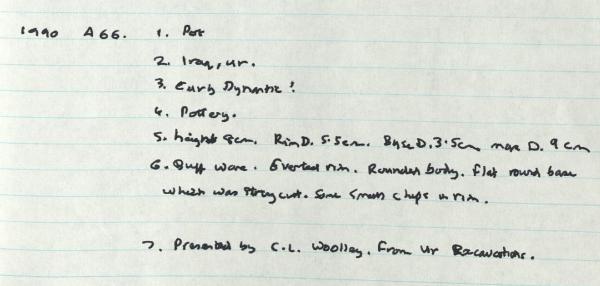 1990 A66. 1. Pot
2. Iraq, Ur.
3. Early Dynastic?
4. Pottery.
5. height 9cm. Rim D. 5.5cm. Base D. 3.5cm max D. 9cm
6. Buff ware. Everted rim. Rounded body. Flat round base
which was string cut. Some small chips in rim.
7. Presented by C.L. Woolley. From Ur Excavations.